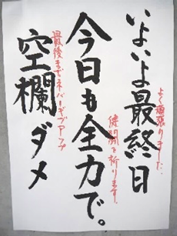 よく頑張りました。
いよいよ最終日
健闘を祈ります。
今日も全力で。
最後までネバーギブアップ
空欄ダメ